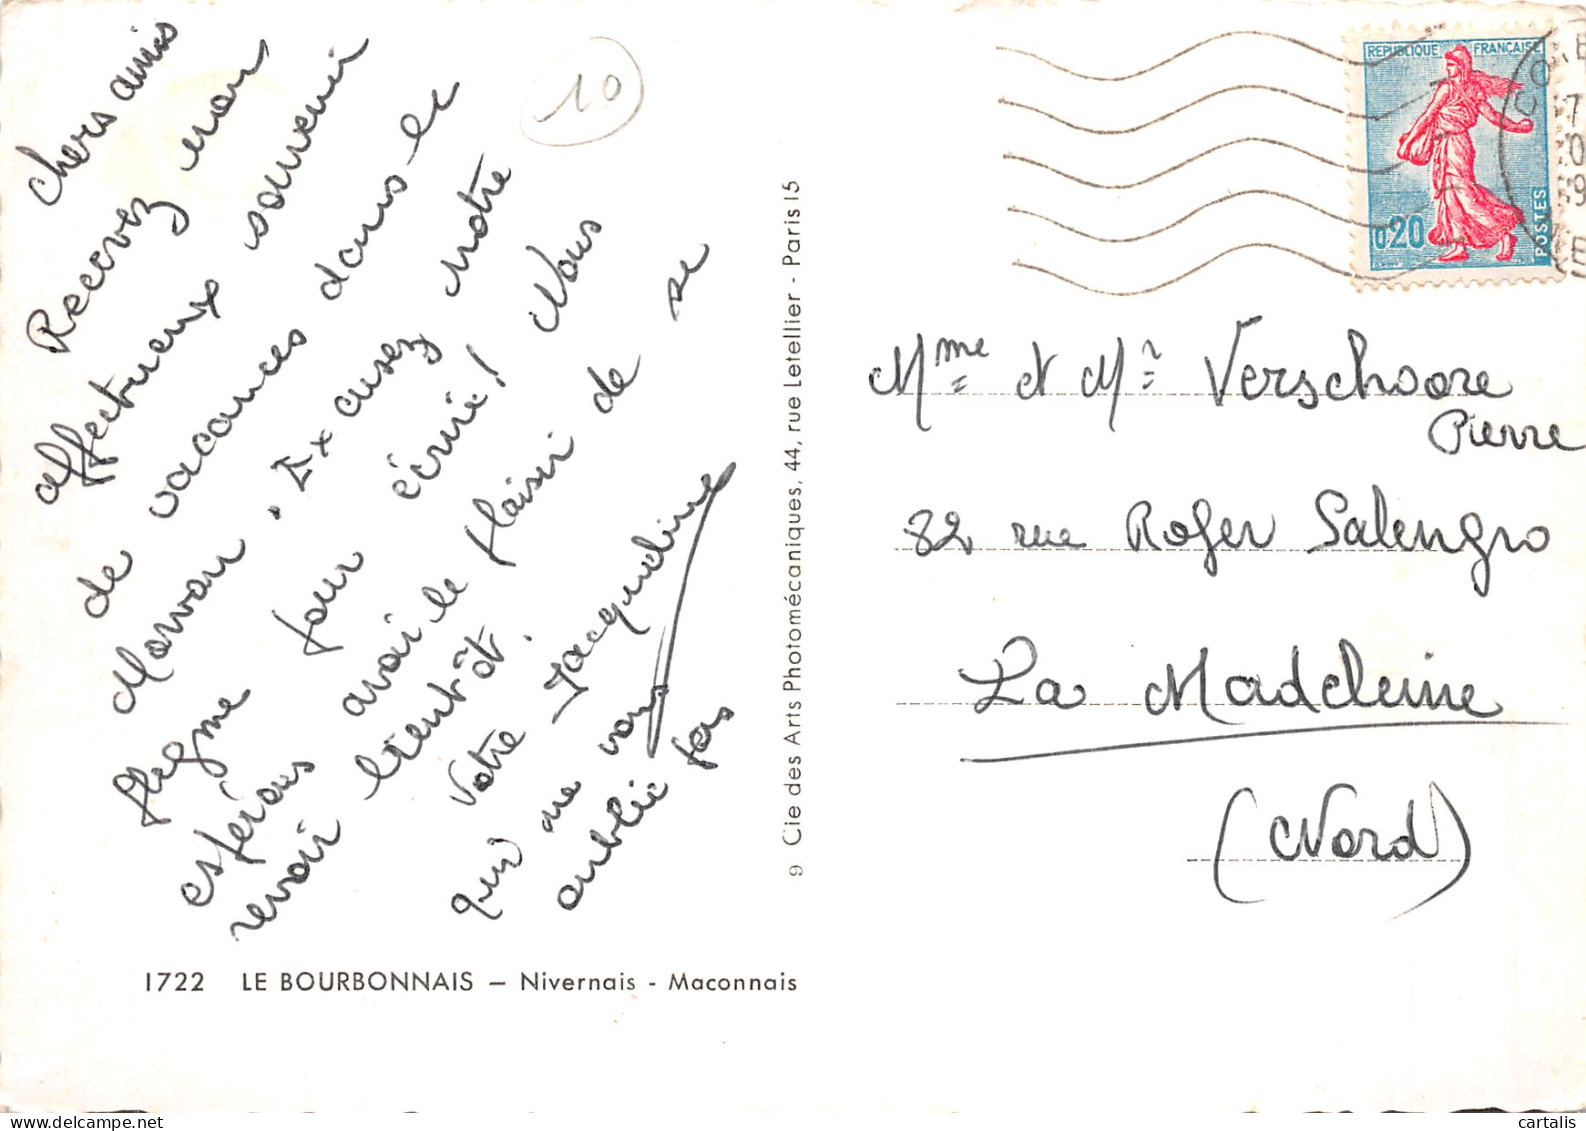 chers amis
Recevez mon
affectueux souvenir
de vacances dans le
Morvan. Excusez notre
flegme pour écrire! Nous
espérons avoir le plaisir de se
revoir bientôt.
Votre Jacqueline
qui ne vous
oublie pas
10
1722 LE BOURBONNAIS – Nivernais - Maconnais
9 Cie des Arts Photomécaniques, 44, rue Letellier - Paris 15
REPUBLIQUE FRANÇAISE
0,20
POSTES
Mme et Mr Verschoore
Pierre
82 rue Roger Salengro
La Madeleine
(Nord)
cartalis